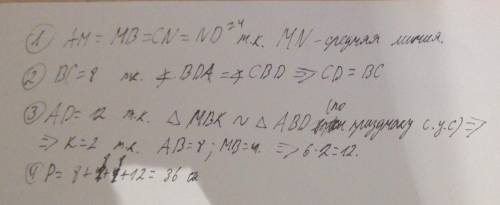 ① AM = MB = CN = ND =4 т.к. MN - средняя линия.
② BC=8 т.к. ∢BDA = ∢CBD => CD = BC
③ AD = 12 т.к. △ MBK ∾ △ ABD (по признаку с.у.с) =>
=> K=2 т.к. AB=8; MB=4. => 6·2=12.
④ P= 8+8+8+12= 36